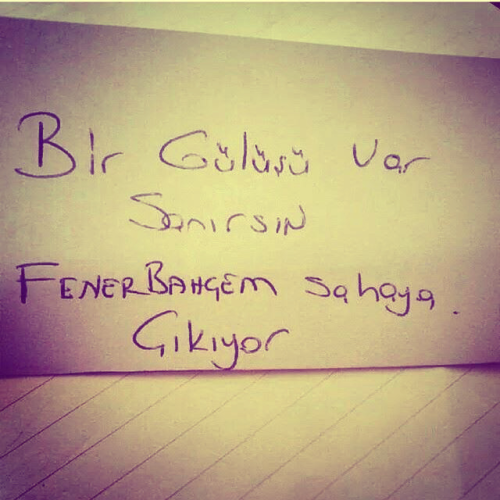 Bir Gülüşü var
Sanırsın
FENERBAHÇEM sahaya.
Çıkıyor